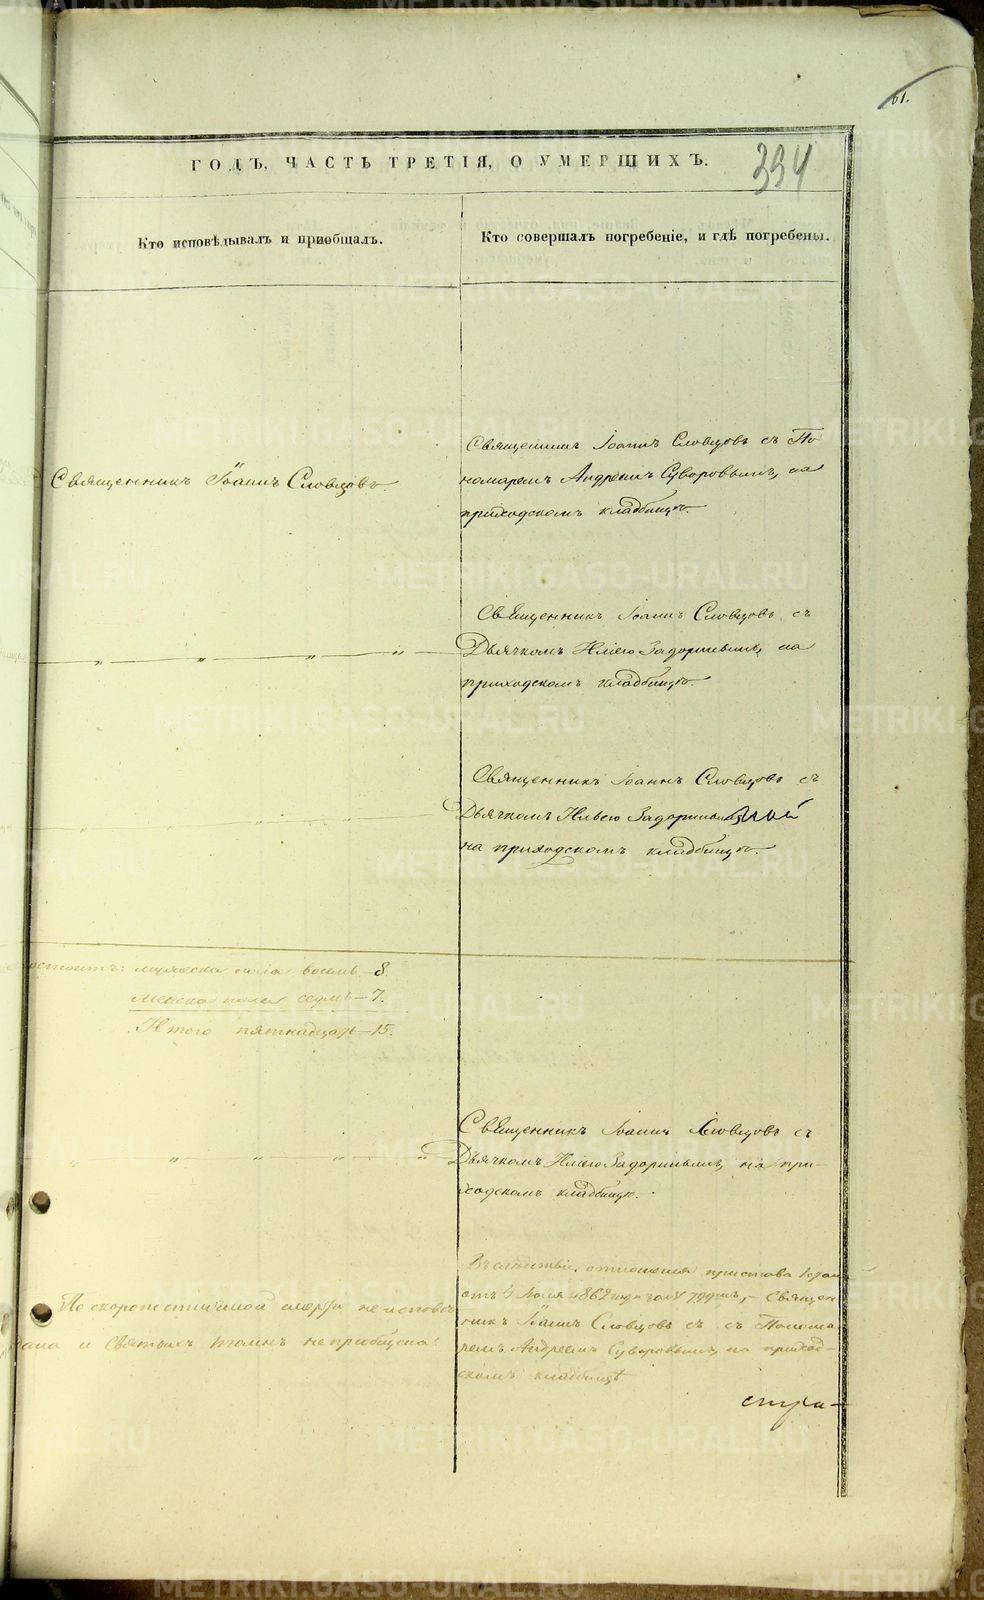 61.
ГОДЪ, ЧАСТЬ ТРЕТІЯ, О УМЕРШИХЪ.
394
Кто исповѣдывалъ и пріобщалъ.
Кто совершалъ погребеніе, и гдѣ погребены.
Священникъ Іоаннъ Словцовъ
Священникъ Іоаннъ Словцовъ съ По
номаремъ Андреемъ Суворовымъ, на
приходскомъ кладбищѣ.
" " " "
Священникъ Іоаннъ Словцовъ съ
Дьячкомъ Иліею Задоринымъ, на
приходскомъ кладбищѣ.
" " " "
Священникъ Іоаннъ Словцовъ съ
Дьячкомъ Ильею
на приходскомъ кладбищѣ.
мужеска пола восемь - 8.
женска пола седмь - 7.
Итого пятнадцать - 15.
" " " " "
Священникъ Іоаннъ Словцовъ съ
Дьячкомъ Иліею Задоринымъ, на при-
ходскомъ кладбищѣ.
По скоропостижной смерти не исповѣ
дана и Святыхъ Таинъ непріобщена.
Въслѣдствіе отношенія пристава
отъ 4 Іюля 1862 года за № Священ
никъ Іоаннъ Словцовъ съ съ Понома
ремъ Андреемъ Суворовымъ, на приход-
скомъ кладбищѣ
METRIKI.GASO-URAL.RU